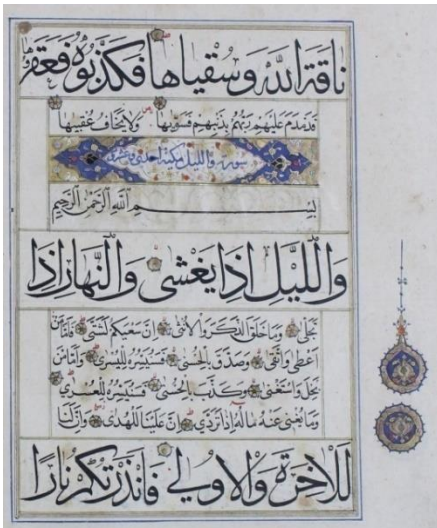 ناقة الله وسقياها فكذبوه فعقروها
فدمدم عليهم ربهم بذنبهم فسويها ولا يخاف عقبيها
سورة والليل مكية احدى وعشرون
بسم الله الرحمن الرحيم
والليل اذا يغشى والنهار اذا
تجلى وما خلق الذكر والانثى ان سعيكم لشتى فاما من
اعطى واتقى وصدق بالحسنى فسنيسره لليسرى واما من
بخل واستغنى وكذب بالحسنى فسنيسره للعسرى
وما يغني عنه ماله اذا تردى ان علينا للهدى وان لنا
للاخرة والاولى فانذرتكم نارا